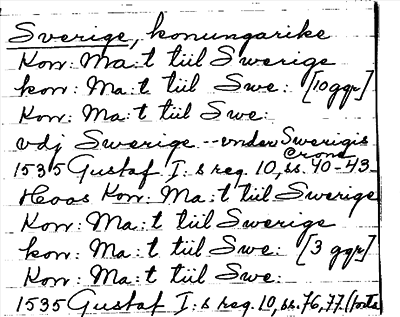 Sverige, konungarike
Kon: Ma:t till Swerige
kon: Ma:t til Swe: [10 ggr]
Kon: Ma:t till Swe:
vdj Swerige -- vnder Swerigis Crone
1535 Gustaf I:s reg. 10, ss. 40-43
Hoos Kon: Ma:t till Swerige
Kon: Ma:t till Swerige
kon: Ma:t till Swe: [3 ggr]
Kon: Ma:t till Swe:
1535 Gustaf I:s reg. 10, ss. 76, 77. (forts